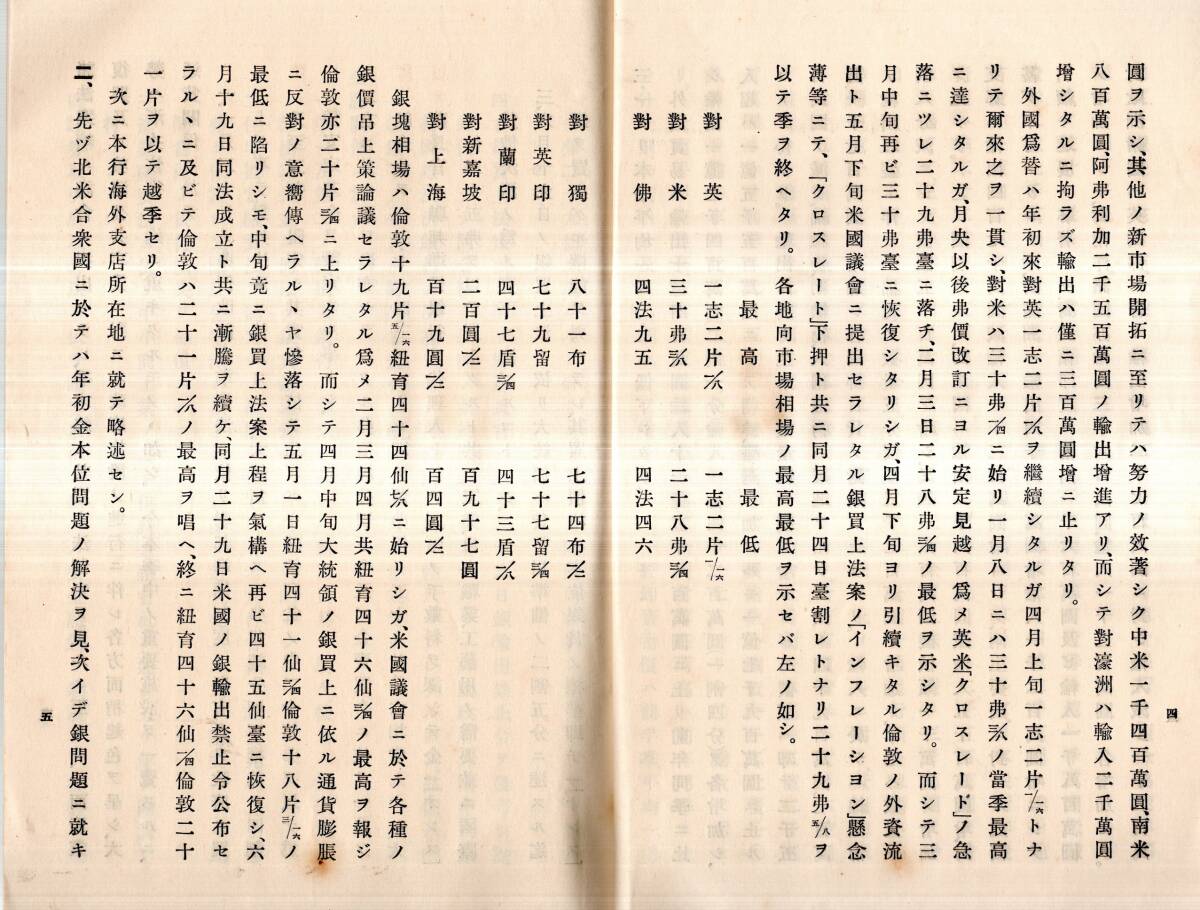 圓ヲ示シ、其他ノ新市場開拓ニ至リテハ努力ノ效著シク中米一千四百萬圓、南米
八百萬圓、阿弗利加二千五百萬圓ノ輸出增進アリ、而シテ對濠洲ハ輸入二千萬圓
增シタルニ拘ラズ輸出ハ僅ニ三百萬圓增ニ止リタリ。
外國爲替ハ年初來對英一志二片一/八ヲ繼續シタルガ四月上旬一志二片一/一六トナ
リテ爾來之ヲ一貫シ、對米ハ三十弗一/四ニ始リ一月八日ニハ三十弗三/八ノ當季最高
ニ達シタルガ、月央以後弗價改訂ニヨル安定見越ノ爲メ英米「クロスレート」ノ急
落ニツレ二十九弗臺ニ落チ、二月三日二十八弗三/四ノ最低ヲ示シタリ。而シテ三
月中旬再ビ三十弗臺ニ恢復シタリシガ、四月下旬ヨリ引續キタル倫敦ノ外資流
出ト五月下旬米國議會ニ提出セラレタル銀買上法案ノ「インフレーシヨン」懸念
薄等ニテ、「クロスレート」下押ト共ニ同月二十四日臺割レトナリ二十九弗五/八ヲ
以テ季ヲ終ヘタリ。各地向市場相場ノ最高最低ヲ示セバ左ノ如シ。
最高 最低
對英 一志二片一/八 一志二片一/一六
對米 三十弗三/八 二十八弗三/四
對佛 四法九五 四法四六
四
對獨 八十一布 七十四布一/二
對英印 七十九留 七十七留三/四
對蘭印 四十七盾三/四 四十三盾一/八
對新嘉坡 二百圓一/二 百九十七圓
對上海 百十九圓一/二 百四圓一/二
銀塊相場ハ倫敦十九片五/一六紐育四十四仙七/八ニ始リシガ、米國議會ニ於テ各種ノ
銀價吊上策論議セラレタル爲メ二月三月四月共紐育四十六仙三/四ノ最高ヲ報ジ
倫敦亦二十片三/四ニ上リタリ。而シテ四月中旬大統領ノ銀買上ニ依ル通貨膨脹
ニ反對ノ意嚮傳ヘラルヽヤ慘落シテ五月一日紐育四十一仙三/四倫敦十八片三/一六ノ
最低ニ陷リシモ、中旬竟ニ銀買上法案上程ヲ氣構ヘ再ビ四十五仙臺ニ恢復シ、六
月十九日同法成立ト共ニ漸騰ヲ續ケ、同月二十九日米國ノ銀輸出禁止令公布セ
ラルヽニ及ビテ倫敦ハ二十一片一/八ノ最高ヲ唱ヘ、終ニ紐育四十六仙一/四倫敦二十
一片ヲ以テ越季セリ。
次ニ本行海外支店所在地ニ就テ略述セン。
二、先ヅ北米合衆國ニ於テハ年初金本位問題ノ解決ヲ見、次イデ銀問題ニ就キ
五